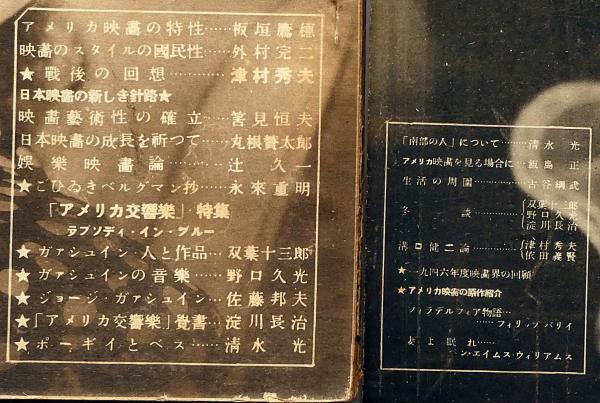 アメリカ映畫の特性……板垣鷹穗
映畫のスタイルの國民性……外村完二
★戰後の回想…………津村秀夫
日本映畫の新しき針路★
映畫藝術性の確立……筈見恒夫
日本映畫の成長を祈つて……丸根賛太郎
娯樂映畫論……辻久一
★こひゐきベルグマン抄……永來重明
「アメリカ交響樂」特集
ラプソディ・イン・ブルー
★ガアシュイン・人と作品…双葉十三郎
★ガアシュインの音樂……野口久光
★ジョージ・ガアシュイン…佐藤邦夫
★「アメリカ交響樂」覺書…淀川長治
★ポーギイとベス……清水光
「南部の人」について………清水光
アメリカ映畫を見る場合に…飯島正
生活の周圍…………古谷綱武
冬談……双葉十三郎
野口久光
淀川長治
溝口健二論……津村秀夫
依田義賢
★一九四六年度映畫界の回顧
★アメリカ映畫の原作紹介
フィラデルフィア物語…
……フィリップ バリイ
妻よ眠れ……
ベン・エイムス・ウィリアムス